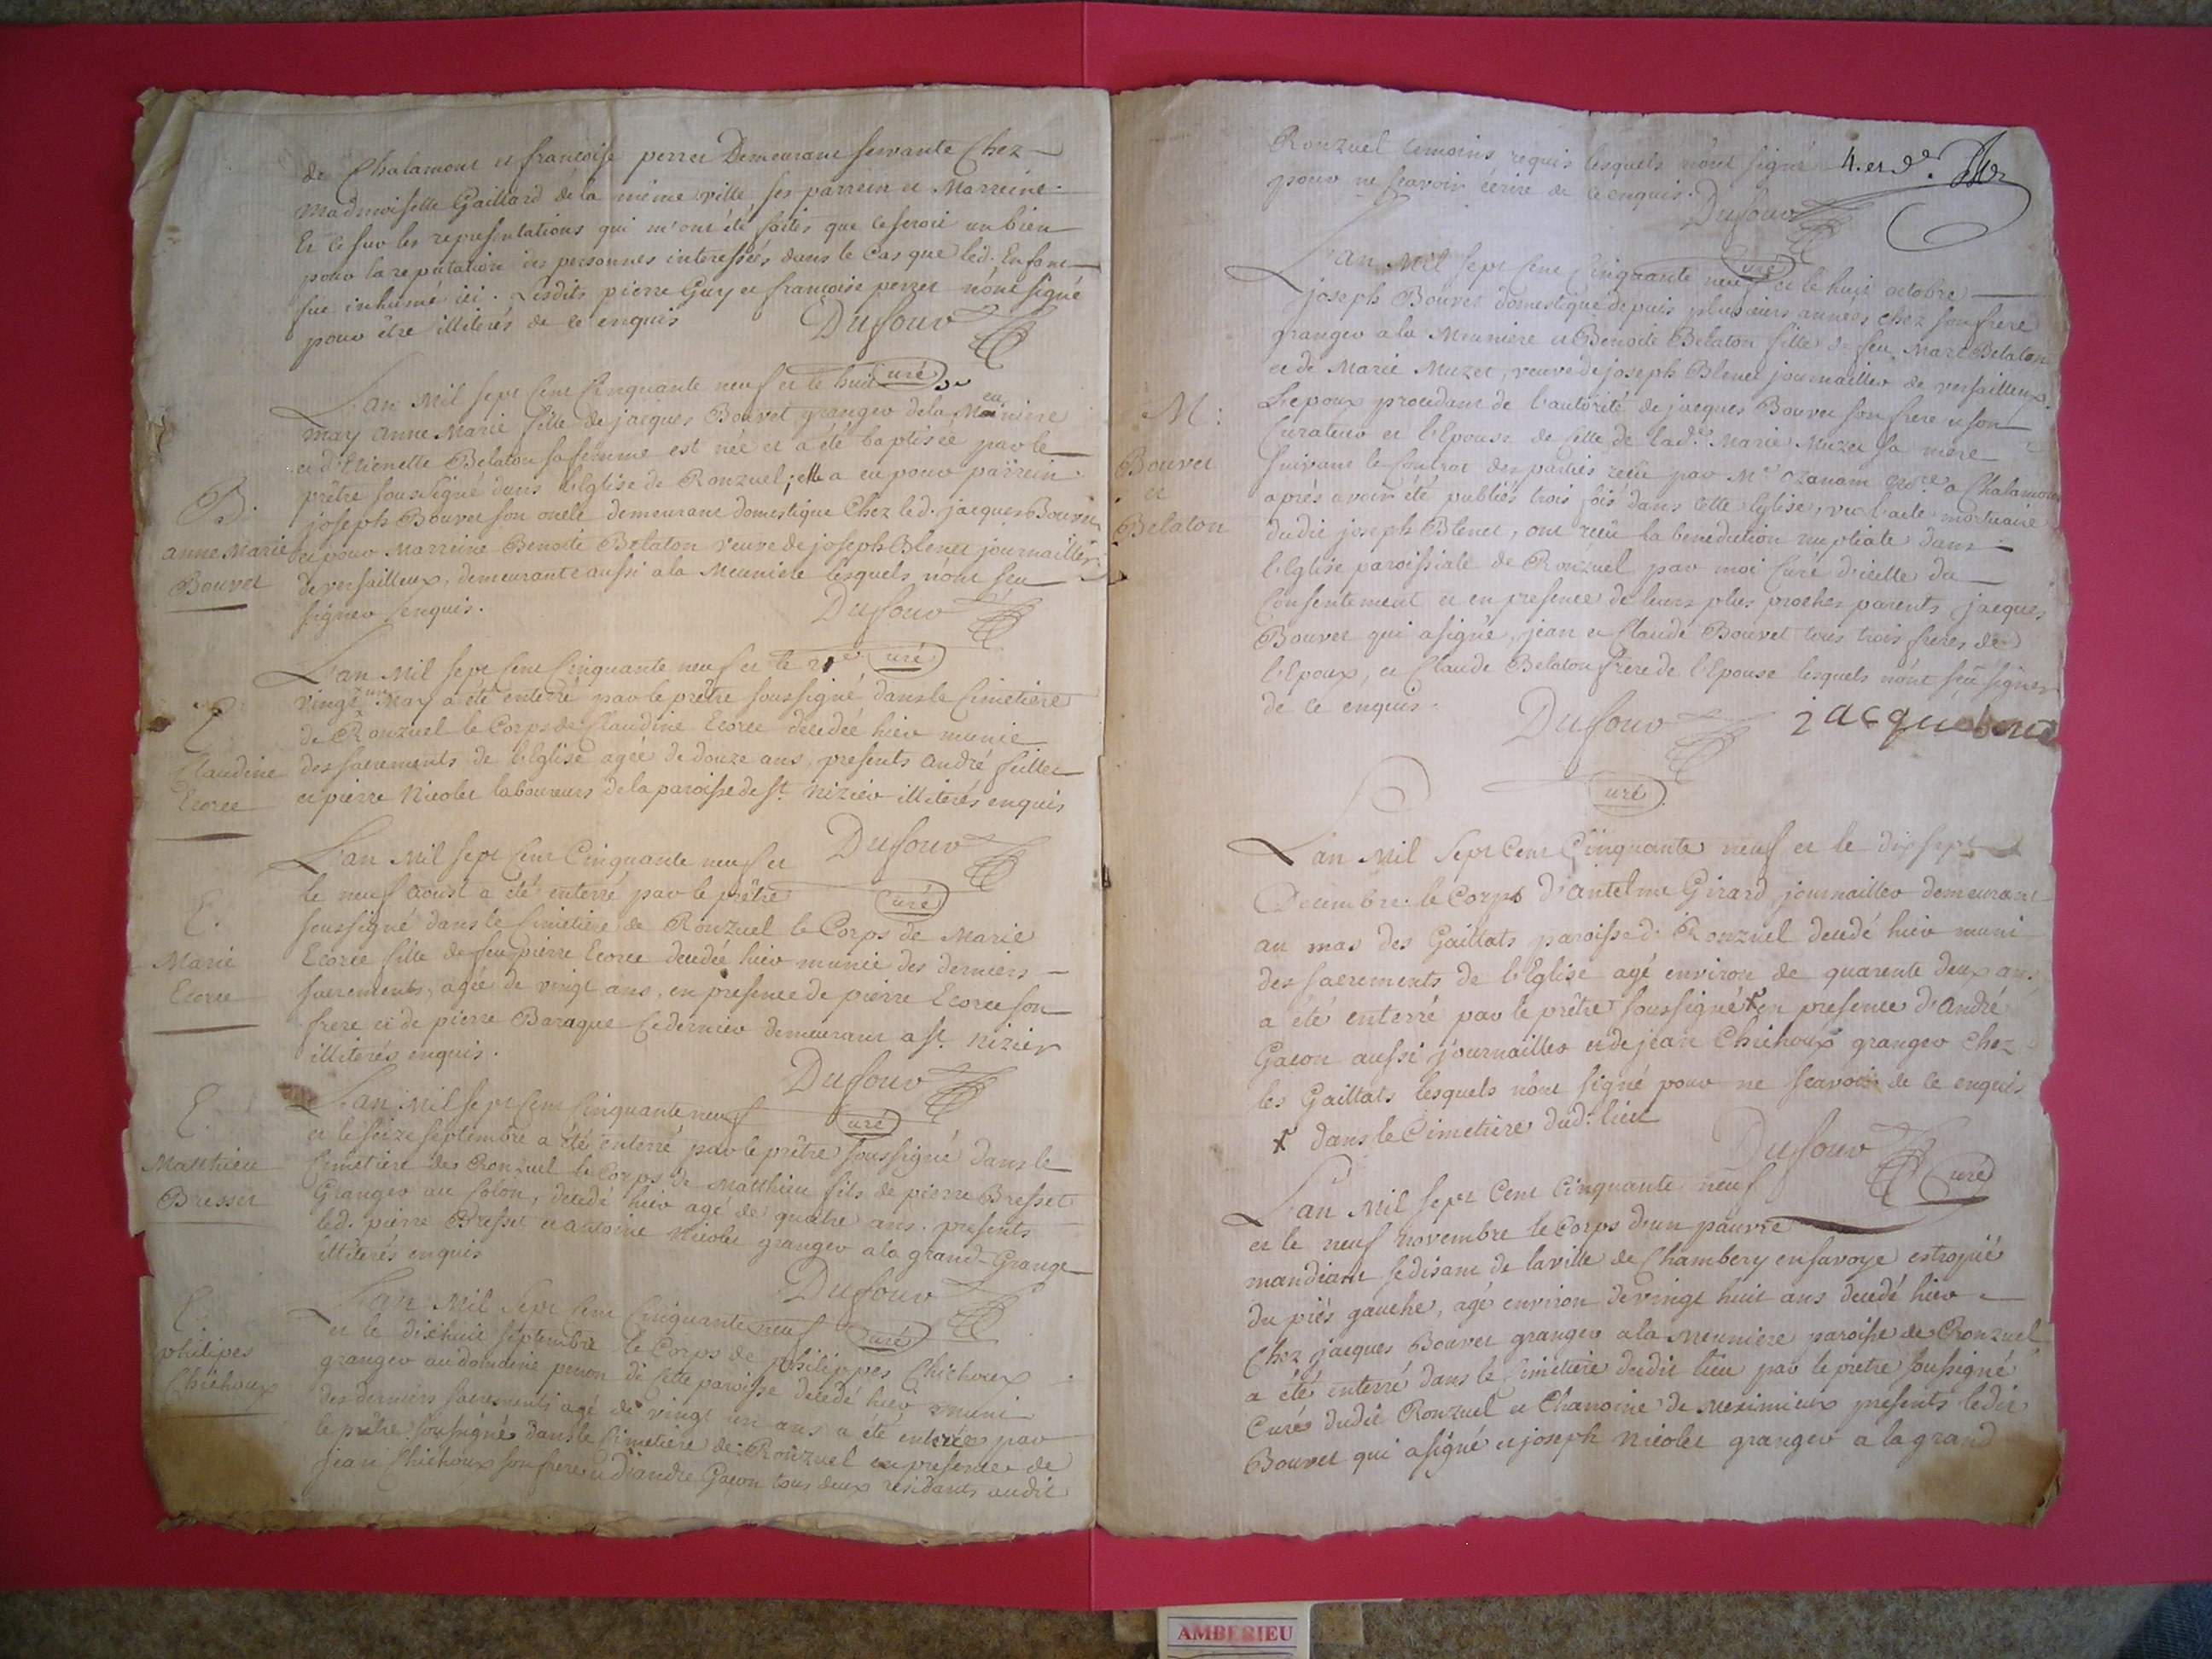 de Chalamont et francoise perret Demeurant servante Chez
Madmoiselle Gaillard de la même ville, ses parrein et Marreine.
Et ce sur les representations qui m'ont été faites que ce seroit un bien
pour la reputation des personnes interessées dans le Cas que led. Enfant
fut inhumé ici. Lesdits pierre Guy et francoise perret n'ont signé
pour être illiterés de ce enquis
Dufour
Curé
L'an Mil sept Cent Cinquante neuf et le huit
may Anne Marie fille de jacques Bouvet granger de la Meuniere
et d'Etienette Belaton sa femme est née et a été baptisée par le
prêtre soussigné dans l'Eglise de Ronzuel; elle a eu pour parrein
joseph Bouvet son oncle demeurant domestique Chez led. jacques Bouvet
et pour Marreine Benoite Belaton veuve de joseph Blenet journaillier
de versailleux, demeurante aussi a la Meuniere lesquels n'ont sçu
signer enquis.
Dufour
Curé
B.
anne Marie
Bouvet
L'an Mil sept Cent Cinquante neuf et le
vingt un May a été enterré par le prêtre soussigné dans le Cimetiere
de Ronzuel le Corps de Claudine Ecoree decedée hier munie
des sacrements de l'Eglise agée de douze ans, presents André feillet
et pierre Nicolet laboureurs de la paroisse de St. Nizier illiterés enquis
Dufour
Curé
E.
Claudine
Ecoree
L'an Mil sept Cent Cinquante neuf et
le neuf Aoust a été enterré par le prêtre
soussigné dans le Cimetiere de Ronzuel le Corps de Marie
Ecoree fille de feu pierre Ecoree decedée hier munie des derniers
sacrements, agée de vingt ans, en presence de pierre Ecoree son
frere et de pierre Baraque ce dernier demeurant a St. Nizier
illiterés enquis.
Dufour
Curé
E.
Marie
Ecoree
L'an Mil sept Cent Cinquante neuf
et le seize septembre a été enterré par le prêtre soussigné dans le
Cimetiere de Ronzuel le Corps de Matthieu fils de pierre Bresset
Granger au Colon, decedé hier agé de quatre ans. presents
led. pierre Bresset et antoine Nicolet granger a la grand-Grange
illiterés enquis
Dufour
Curé
E.
Matthieu
Bresset
L'an Mil sept Cent Cinquante neuf
et le dixhuit septembre le Corps de philippes Chichoux
granger au domaine peron de cette paroisse decedé hier muni
des derniers sacrements agé de vingt un ans a été enterré par
le prêtre soussigné dans le Cimetiere de Ronzuel en presence de
jean Chichoux son frere et d'andré Gacon tous deux residants audit
E.
philipes
Chichoux
Ronzuel temoins requis lesquels n'ont signé
pour ne scavoir écrire de ce enquis.
4. et de.
Dufour
Curé
L'an Mil sept Cent Cinquante neuf et le huit octobre
joseph Bouvet domestique depuis plusieurs années chez son frere
granger a la Meuniere et Benoite Belaton fille de feu Marc Belaton
et de Marie Muzet, veuve de joseph Blenet journaillier de versailleux.
L'epoux procedant de l'autorité de jacques Bouvet son frere et son
Curateur et l'Epouse de celle de lade. Marie Muzet sa mere
suivant le Contrat des parties recu par Me. Ozanam nore. a Chalamont
aprés avoir été publiés trois fois dans cette Eglise, vu l'acte mortuaire
dudit joseph Blenet, ont reçu la benediction nuptiale dans
l'Eglise paroissiale de Ronzuel par moi Curé d'icelle du
Consentement et en presence de leurs plus proches parents jacques
Bouvet qui a signé, jean et Claude Bouvet tous trois freres de
l'Epoux, et Claude Belaton frere de l'Epouse lesquels n'ont sçu signer
de ce enquis.
Dufour
Curé
M:
Bouvet
et
Belaton
L'an Mil Sept Cent Cinquante neuf et le dixsept
Decembre le Corps d'Antelme Girard journaillier demeurant
au mas des Gaillats paroisse de Ronzuel decedé hier muni
des sacrements de l'Eglise agé environ de quarente deux ans
a été enterré par le prêtre soussigné x en presence d'André
Gacon aussi journaillier et de jean Chichoux granger chez
les Gaillats lesquels n'ont signé pour ne scavoir de ce enquis
x dans le Cimetiere dud. lieu
Dufour
Curé
L'an Mil sept Cent Cinquante neuf
et le neuf novembre le Corps d'un pauvre
mandiant se disant de la ville de Chambery en savoye estropié
du piés gauche, agé environ de vingt huit ans decedé hier
Chez jacques Bouvet granger a la Meuniere paroisse de Ronzuel
a été enterré dans le Cimetiere dudit lieu par le prêtre soussigné
Curé dudit Ronzuel et Chanoine de Meximieux presents ledit
Bouvet qui a signé et joseph Nicolet granger a la grand
AMBERIEU